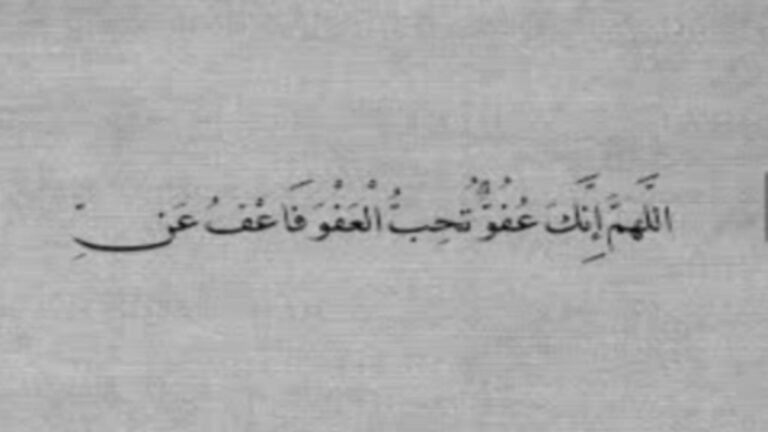 اللَّهمَّ إِنَّكَ عُفُوٌّ تُحِبُّ الْعَفْوَ فَاعْفُ عَنِّ